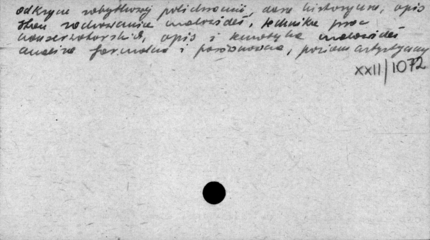 odkrycie zabytkowej polichromii, dane historyczne, opis
stan zachowania malowideł, technika prac
konserwatorskich, opis i malowideł
analiza formalna i porównawcza, poziom artystyczny
XXII/1072